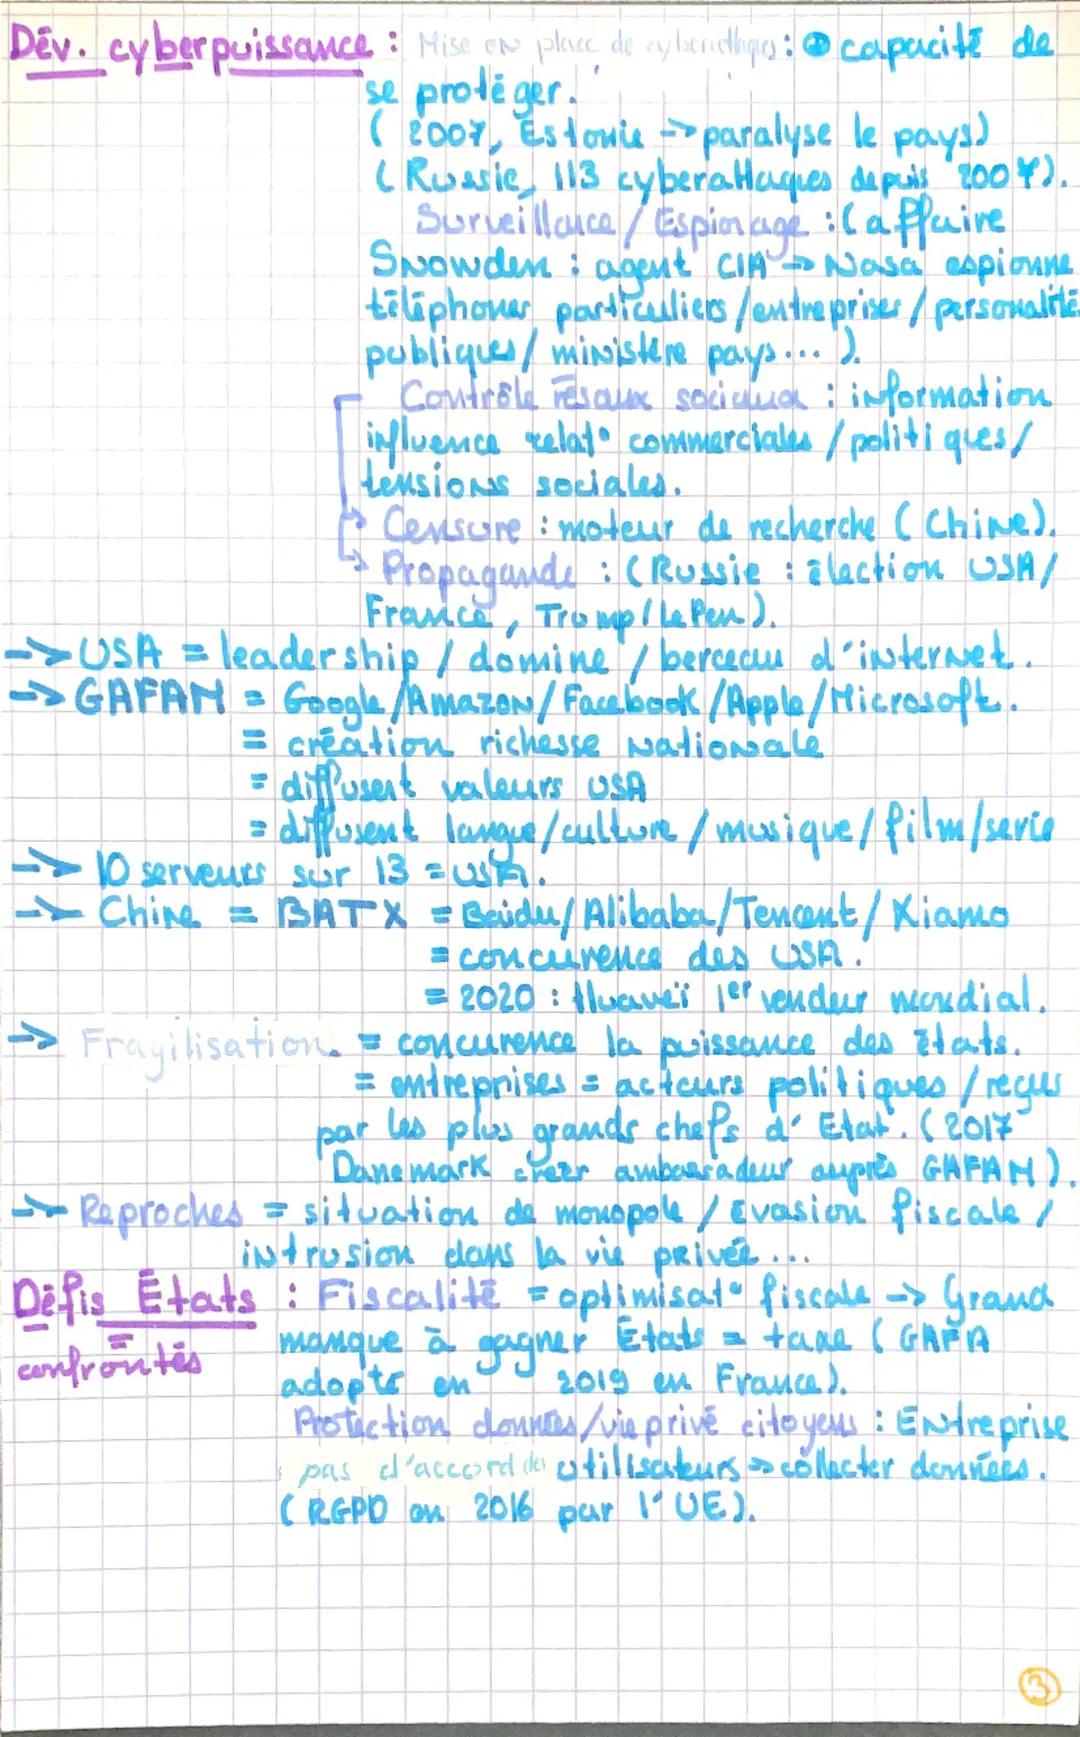 Dév. cyberpuissance : Mise en place de cyberattaques : capacité de
se protéger.
( 2007, Estonie -> paralyse le pays)
( Russie, 113 cyberattaques depuis 2007).
Surveillance / Espionage : (affaire
Snowden : agent CIA -> Nasa espionne
téléphones particuliers/entreprises/personalité
publiques/ ministère pays... ).
Contrôle résaux sociaux : information
influence relat° commerciales / politiques/
tensions sociales.
-> Censure : moteur de recherche ( Chine).
-> Propagande : ( Russie : élection USA/
France, Trump/Le Pen ).
-> USA = leadership / domine / berceau d'internet.
-> GAFAM = Google/Amazon/Facebook/Apple/Microsoft.
= création richesse nationale
= diffusent valeurs USA
= diffusent langue/culture / musique/ film/serie
-> 10 serveurs sur 13 = USA.
-> Chine = BATX = Baidu/Alibaba/Tencent/Xiamo
= concurence des USA.
= 2020 : Huaveï 1er vendeur mondial.
-> Fragilisation. = concurence la puissance des États.
= entreprises = acteurs politiques / reçus
par les plus grands chefs d' Etat. ( 2017
Danemark créer ambassadeur auprès GAFAM ).
-> Reproches = situation de monopole / Evasion fiscale /
intrusion dans la vie privée...
Défis États : Fiscalité = optimisat° fiscale -> Grand
confrontés manque à gagner États = taxe ( GAFA
adopté en 2019 en France).
Protection données/vie privé citoyens : Entreprise
pas d'accord des utilisateurs -> collecter données.
( RGPD en 2016 par l'UE).
3